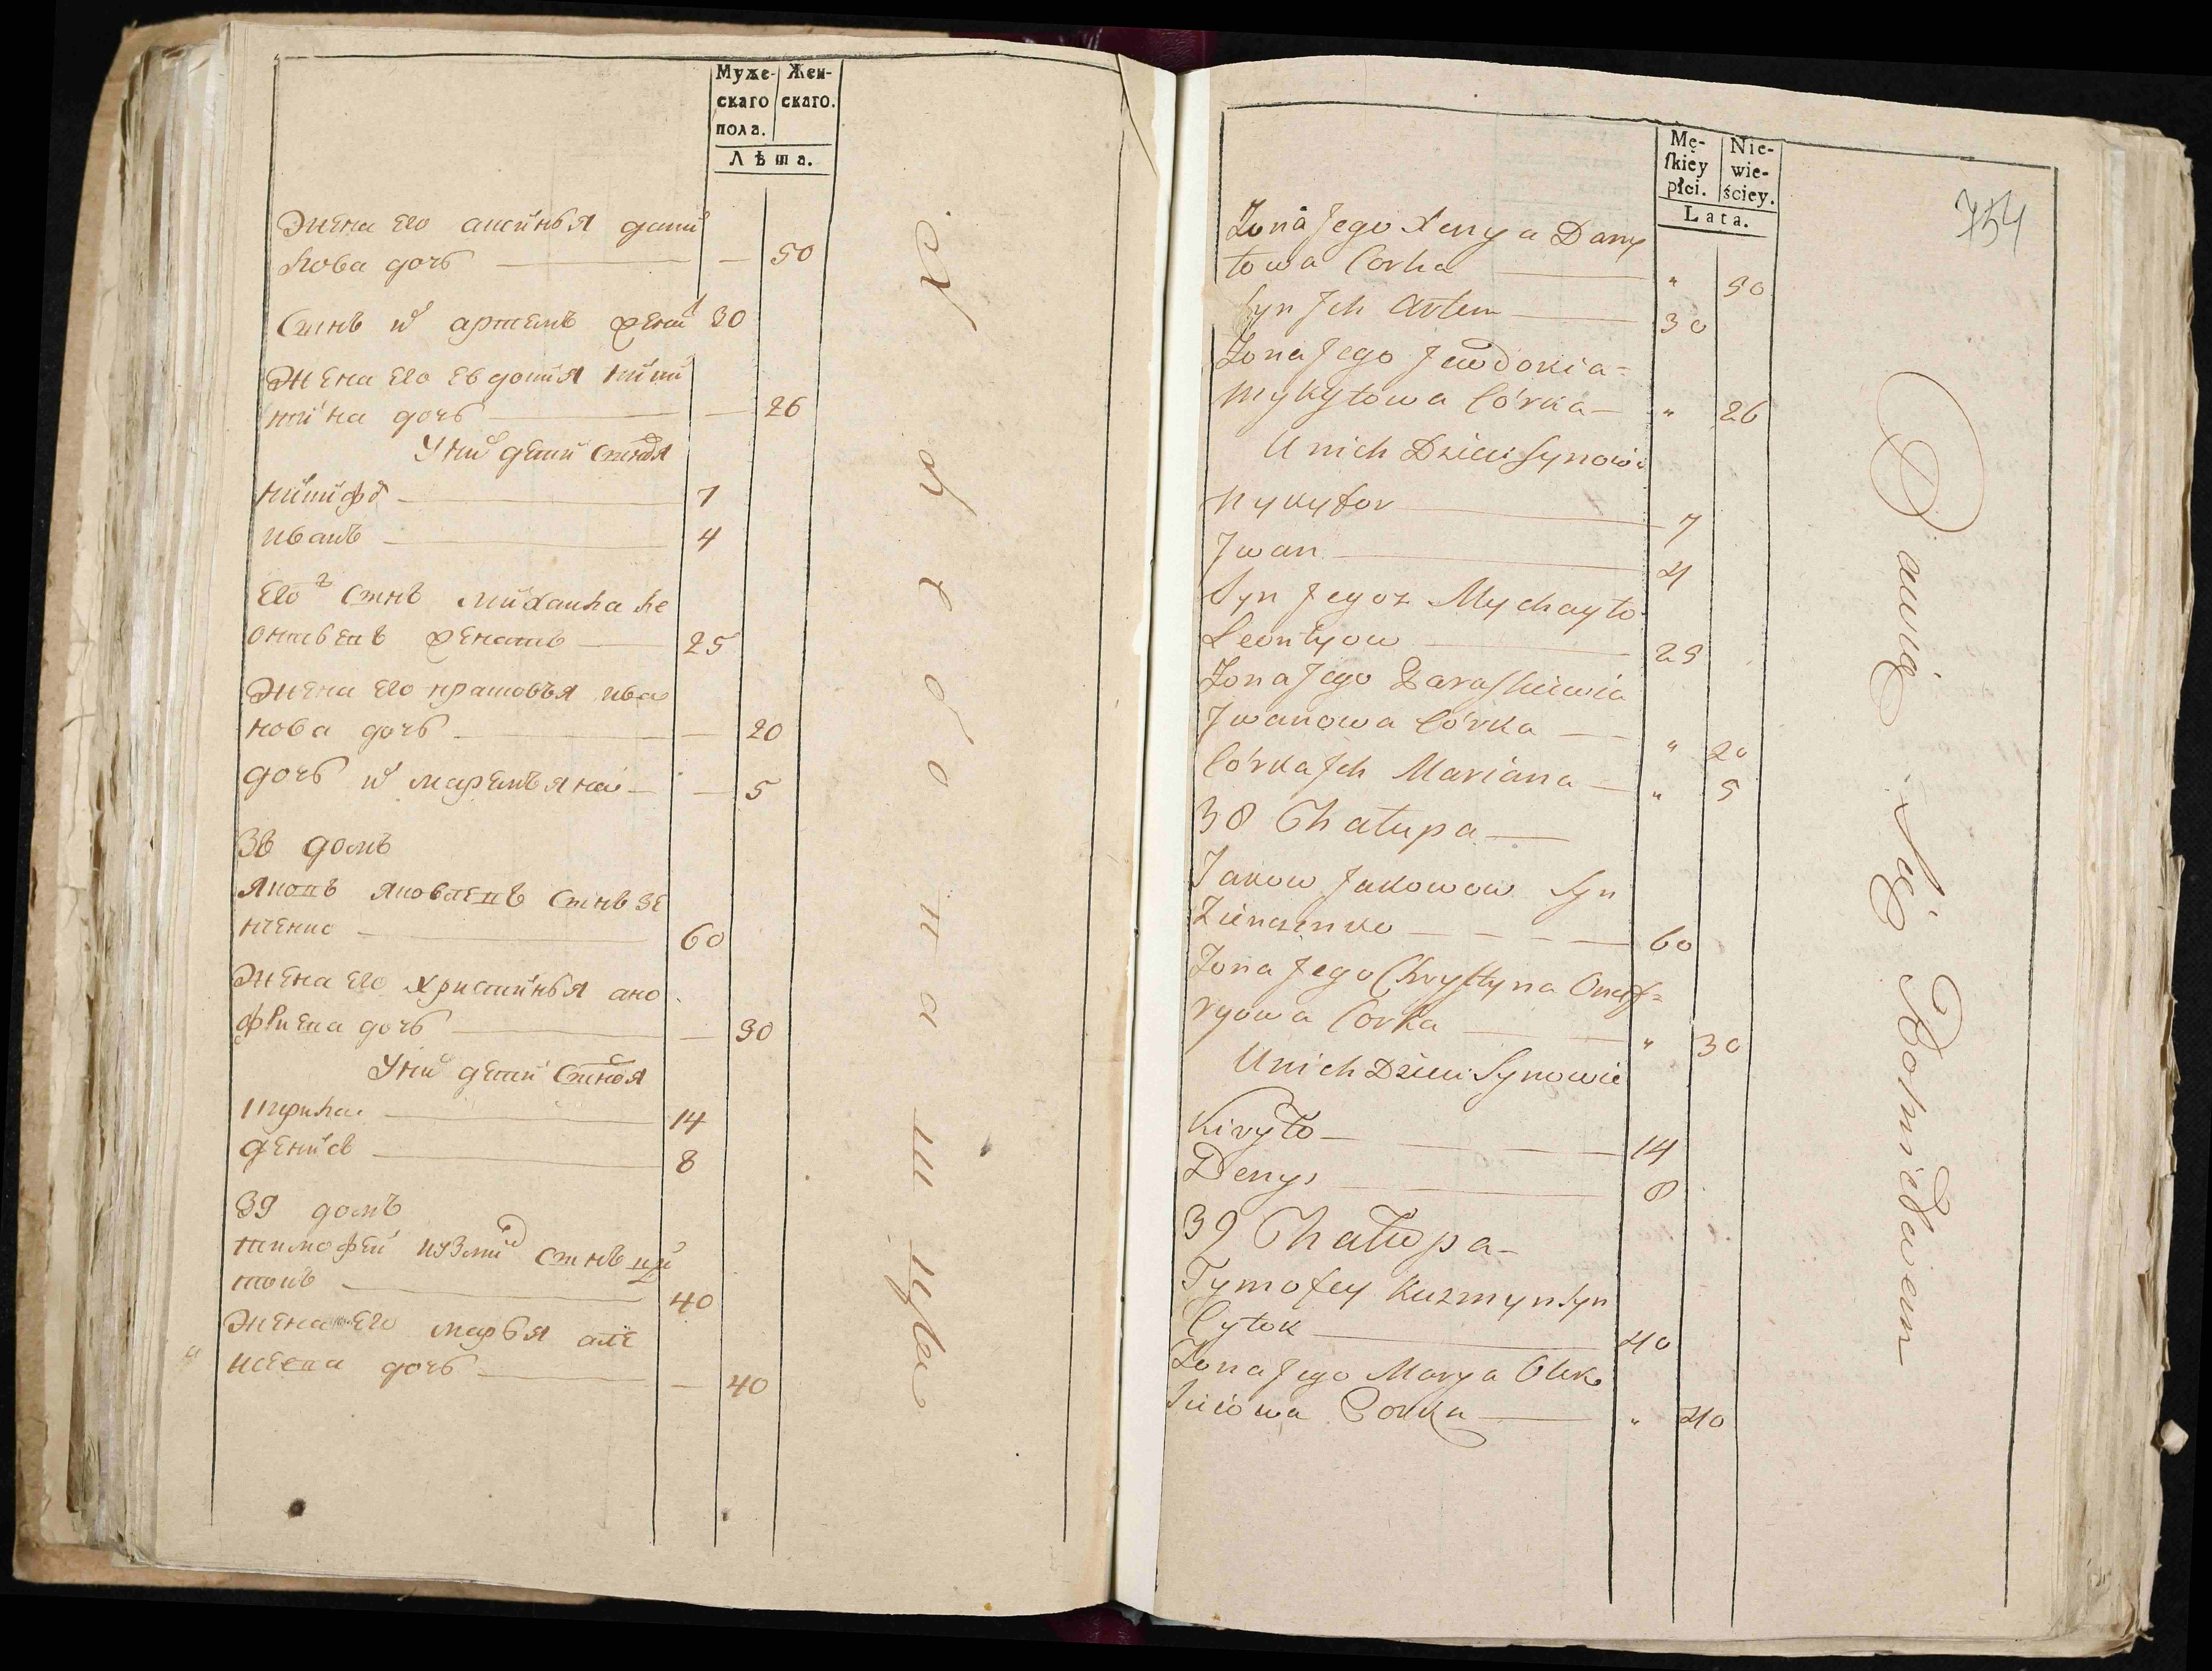 Муже-
скаго
пола.
Жен-
скаго.
Лѣта.
Жена его аксинья дани
лова дочь — — 50
Сынъ их артемъ 30
Жена его евдокия ники
тина дочь — — 26
У них дети сыновя
никифоръ — 7
иванъ — 4
Его сынъ михаила ле
онтьевъ — 25
Жена его прасковья ива
нова дочь — — 20
дочь их маремьяна — — 5
38 домъ
яковъ яковлевъ сынъ зе
нченко — 60
Жена его христинья ано
фриева дочь — — 30
У них дети сыновя
кирила — 14
денисъ — 8
39 домъ
тимофей кузмин сынъ ци
токъ — 40
Жена его марья але
ксеева дочь — — 40
Mę-
ſkiey
płci.
Nie-
wie-
ściey.
Lata.
754
Zona Jego Xenya Dany
łowa Corka — " 50
Syn Jch Artem — 30
Zona Jego Jewdokia =
Mykytowa Córka — " 26
U nich Dzieci Synowie
Nykyfor — 7
Jwan — 4
Syn Jegoz Mychayło
Leontyow — 25
Zona Jego Paraſkiewia
Jwanowa Córka — " 20
Córka Jch Mariana — " 5
38 Chałupa —
Jakow Jakowow Syn
Zienczenko — 60
Zona Jego Chryſtyna Onof=
ryowa Corka — " 30
U nich Dzieci Synowie
Kiryło — 14
Denys — 8
39 Chałupa —
Tymofey Kuzmyn Syn
Cytok — 40
Zona Jego Marya Olek
siiowa Corka — " 40